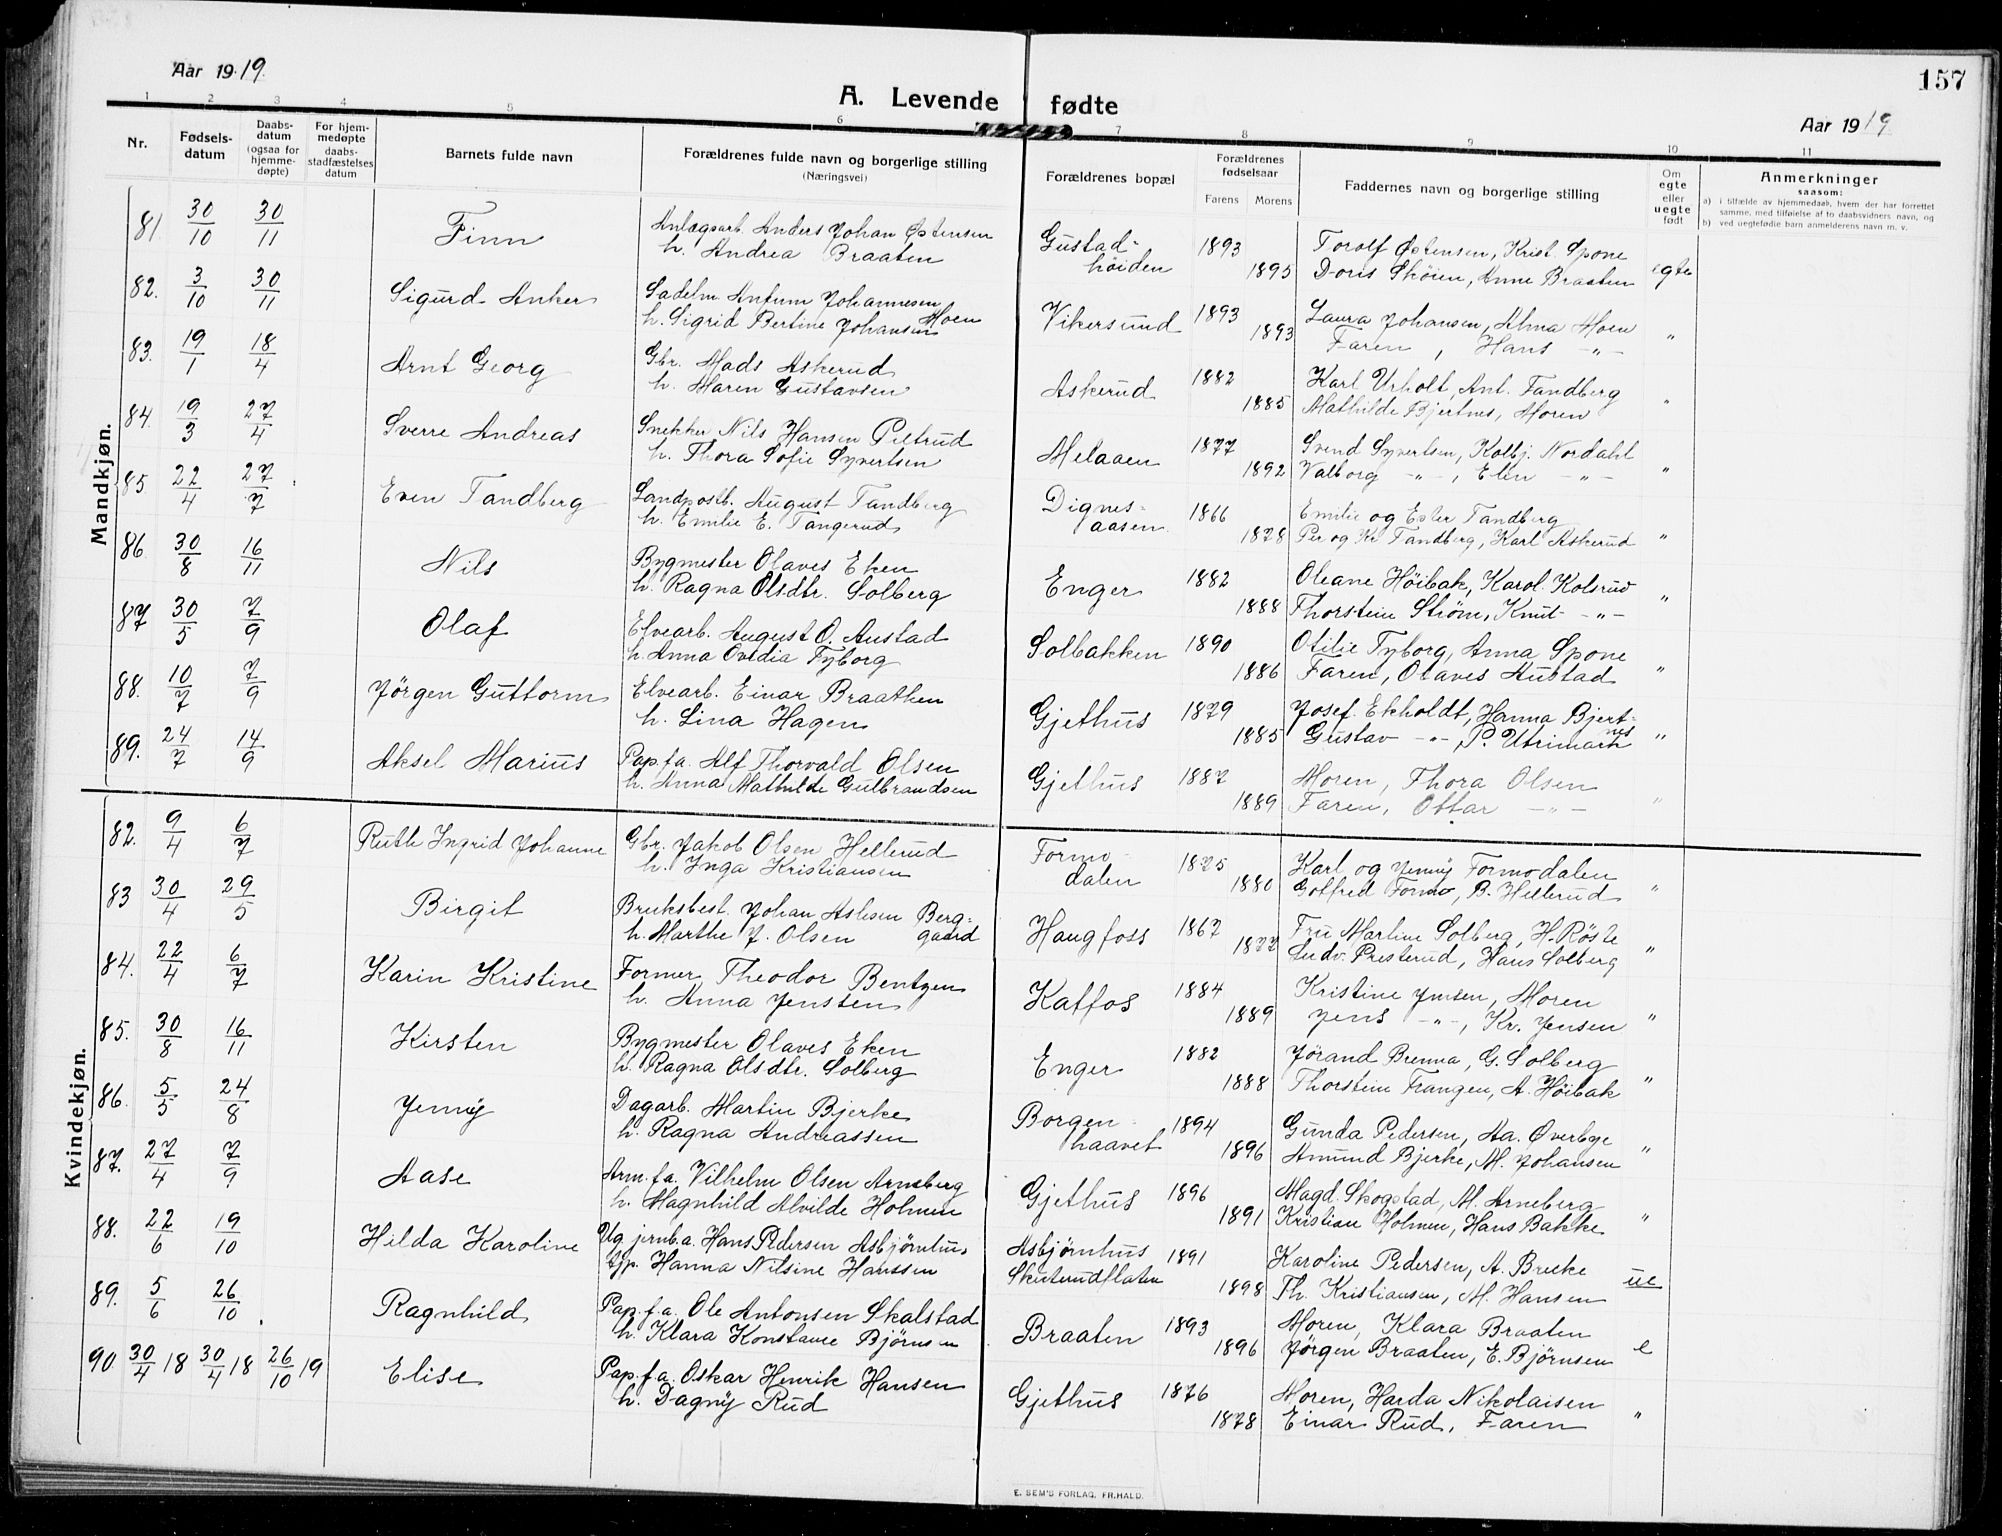 Aar 1919.
157
A. Levende fødte
Aar 1919
1 2 3 4 5 6 7 8 9 10 11
Nr.
Fødsels-
datum
Daabs-
datum
(ogsaa for
hjemme-
døpte)
For hjem-
medøpte
daabs-
stadfæstelses
datum
Barnets fulde navn
Forældrenes fulde navn og borgerlige stilling
(Næringsvei)
Forældrenes bopæl
Forældrenes
fødselsaar
Farens Morens
Faddernes navn og borgerlige stilling
Om
egte
eller
uegte
født
Anmerkninger
saasom:
a) i tilfælde av hjemmedaab, hvem der har forrettet
samme, med tilføielse af to daabsvidners navn, og
b) ved uegtefødte barn anmelderens navn m. v.
Mandkjøn.
81 30/10 30/11 Finn Anlægsarb. Anders Johan Østensen Gustad- 1893 Torolf Østensen, Krist. Spone
h. Andrea Braaten høiden 1895 Doris Skøien, Anne Braaten egte
82. 3/10 30/11 Sigurd Anker Sadelm. Antum Johannesen Vikersund 1893 Laura Johansen, Alma Moen
Moen
h. Sigrid Bertine Johansen 1893 Faren, Hans -"- "
83. 19/1 18/4 Arnt Georg Gbr. Mads Askerud Askerud 1882 Karl Urholt, Ant. Tandberg
h. Maren Gustavsen 1885 Mathilde Bjertnes, Moren "
84. 19/3 27/4 Sverre Andreas Snekker Nils Hansen Piltrud Melaaen 1877 Svend Syvertsen, Kolbj. Nordahl
h. Thora Sofie Syvertsen 1892 Valborg -"-, Elin -"- "
85 22/4 27/7 Even Tandberg Landpostb. August Tandberg Dignes- 1866 Emilie og Ester Tandberg
h. Emilie E. Tangerud aasen 1878 Per og Kr Tandberg, Karl Askerud "
86. 30/8 16/11 Nils Bygmester Olaves Eken Enger 1882 Oleane Høibak, Karol. Kolsrud
h. Ragna Olsdtr. Solberg 1888 Thorstein Strøm, Knut -"- "
87 30/5 7/9 Olaf Elvearb. August O. Austad Solbakken 1890 Otilie Tyborg, Anna Spone
h. Anna Ovidia Fyborg 1886 Faren, Olaves Austad "
88. 10/7 7/9 Jørgen Guttorm Elvearb. Einar Braathen Gjethus 1879 Josef Ekholdt, Hanna Bjert-
nes
h. Lina Hagen 1885 Gustav -"-, P. Utrimark "
89. 24/7 14/9 Aksel Marius Pap.f.a. Alf Thorvald Olsen Gjethus 1887 Moren, Thora Olsen
h. Anna Mathilde Gulbrandsen 1889 Faren, Ottar -"- "
Kvindekjøn.
82. 9/4 6/7 Ruth Ingrid Johanne Gbr. Jakob Olsen Hellerud Formo- 1875 Karl og Jenny Formodalen
h. Inga Kristiansen dalen 1880 Gotfred Formo, B. Hellerud "
83 30/4 29/5 Birgit Bruksbest. Johan Aslesen Berg- Haugfoss 1867 Fru Martine Solberg, H. Røste
h. Marthe J. Olsen gaard 1877 Ludv. Presterud, Hans Solberg "
84. 22/4 6/7 Karin Kristine Former Theodor Bentzen Katfos 1884 Kristine Jensen, Moren
h. Anna Jensten 1889 Jens -"-, Kr. Jensen "
85. 30/8 16/11 Kirsten Bygmester Olaves Eken Enger 1882 Jørand Brenna, G. Solberg
h. Ragna Olsdtr. Solberg 1888 Thorstein Frangen, A. Høibak "
86. 5/5 24/8 Jenny Dagarb. Martin Bjerke Borgen- 1894 Gunda Pedersen, Aa. Øverbye
h. Ragna Andreassen haavet 1896 Amund Bjerke, M. Johansen "
87. 27/4 7/9 Aase Arm.f.a. Vilhelm Olsen Arneberg Gjethus 1896 Magd. Skogstad, M. Arneberg
h. Magnhild Alvilde Holmen 1891 Kristian Holmen, Hans Bakke "
88. 22/6 19/10 Hilda Karoline Ug. jernb.a. Hans Pedersen Asbjørnhus Asbjørnhus 1891 Karoline Pedersen, A. Brecke
Gp. Hanna Nilsine Hanssen Skuterudflaten 1898 Th. Kristiansen, M. Hansen ue
89. 5/6 26/10 Ragnhild Pap.f.a. Ole Antonsen Skalstad Braaten 1893 Moren, Klara Braaten
h. Klara Konstance Bjørnsen 1896 Jørgen Braaten, E. Bjørnsen e
90. 30/4 18 30/4 18 26/10 19 Elise Pap.f.a. Oskar Henrik Hansen Gjethus 1876 Moren, Harda Nikolaisen
h. Dagny Rud 1878 Einar Rud, Faren "
E. SEM'S FORLAG, FR.HALD.